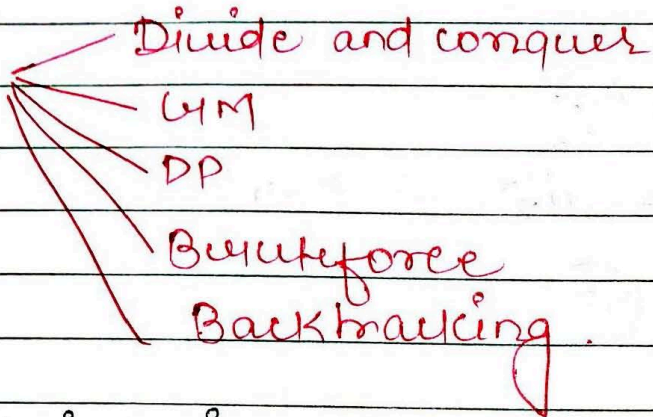 Divide and conquer
GM
DP
Bruteforce
Backtracking.